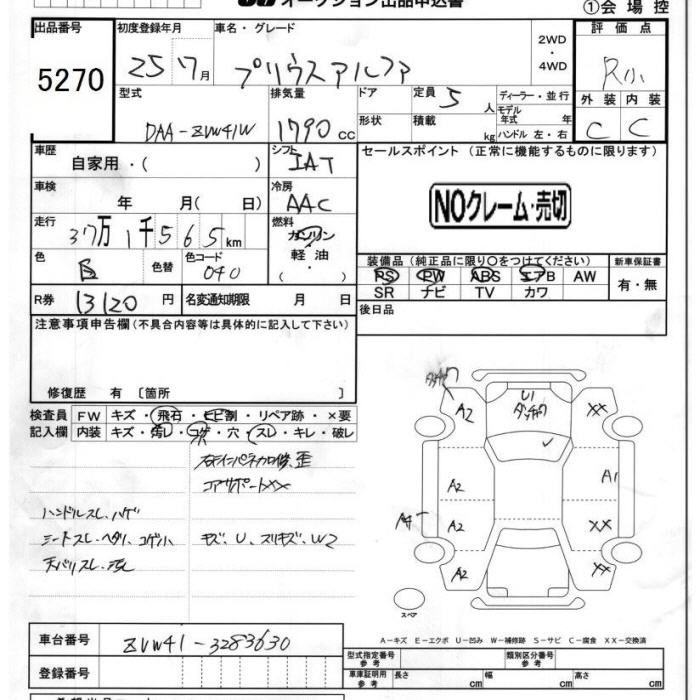 オークション出品申込書
①会場控
出品番号 初度登録年月 車名・グレード 2WD・4WD 評価点
5270 25 7月 プリウスアルファ R小
型式 排気量 ドア 定員 5人 ディーラー・並行 外装 内装
DAA-ZVW41W 1790cc 形状 積載 kg モデル年式 年 ハンドル 左・右 C C
車歴 自家用・( ) シフト IAT セールスポイント (正常に機能するものに限ります)
車検 年 月( 日) 冷房 AAC
NOクレーム・売切
走行 37万1千565km 燃料 ガソリン・軽油・( )
色 白 色替 色コード 040 装備品(純正品に限り○をつけてください) 新車保証書
PS PW ABS エアB AW 有・無
SR ナビ TV カワ
R券 13120円 名変通知期限 月 日 後日品
注意事項申告欄(不具合内容等は具体的に記入して下さい)
修復歴 有 〔箇所 〕
検査員 FW キズ・飛石・ヒビ割・リペア跡・×要
記入欄 内装 キズ・汚レ・コゲ・穴・スレ・キレ・破レ
コアサポートXX
ハンドルスレ、ハゲ
シートスレ・ヘタリ、コゲ小、 キズ、U、スリキズ、W2
天バリスレ・汚レ
A2 U1 XX
A2 A1
A2 XX
A2 XX
スペア
A-キズ E-エクボ U-凹み W-補修跡 S-サビ C-腐食 XX-交換済
車台番号 ZVW41-3283630
登録番号
型式指定番号 参考 類別区分番号 参考
車庫証明用 参考 長さ cm 幅 cm 高さ cm